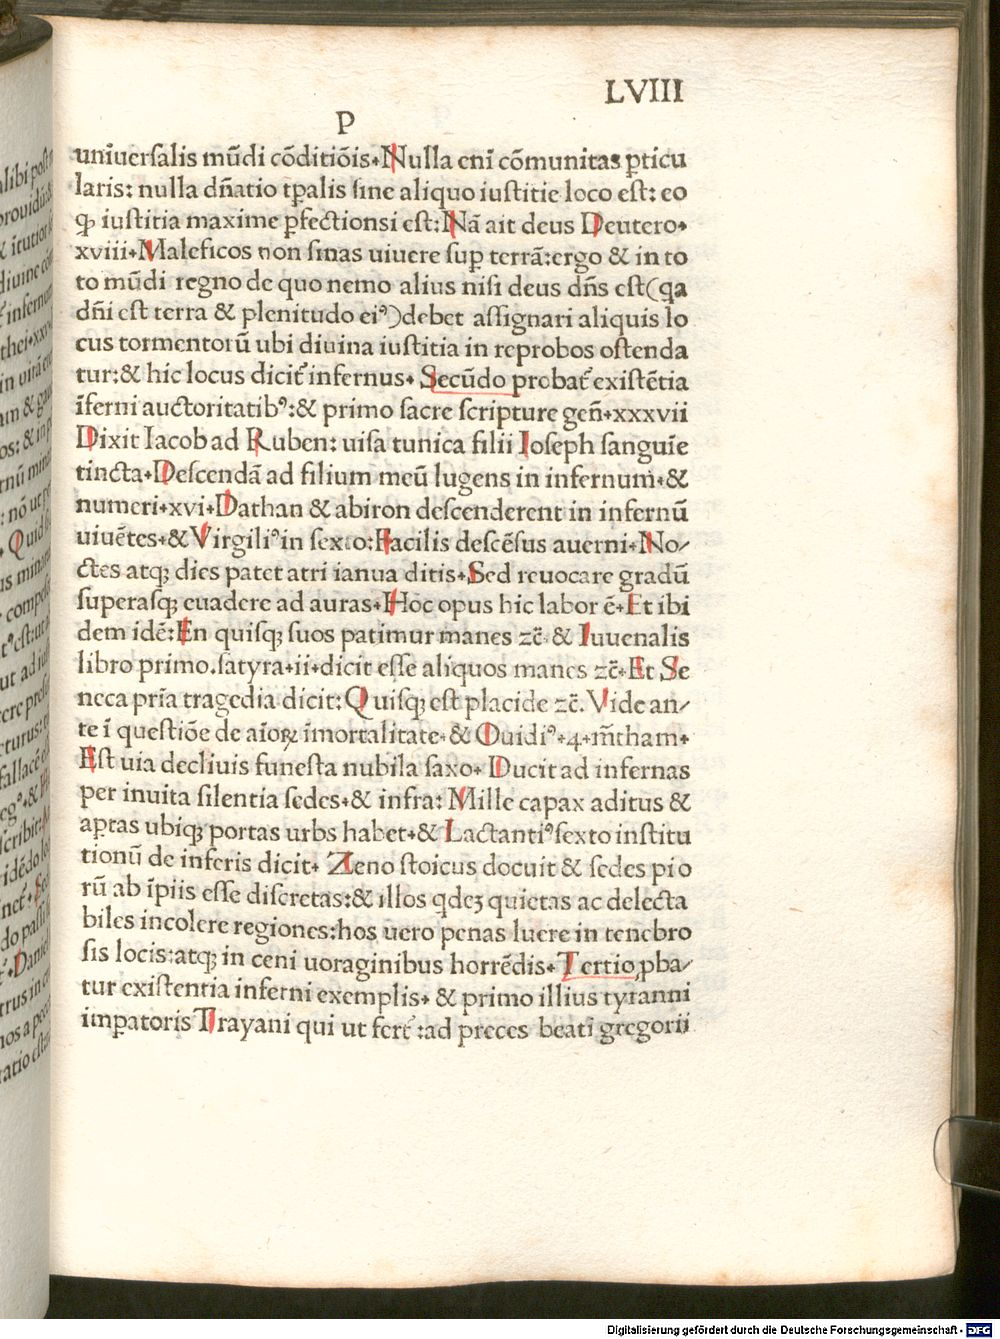 LVIII
P
uniuersalis mũdi cõditiõis. Nulla eni cõmunitas ꝑticu
laris: nulla dñatio tꝑalis sine aliquo iustitie loco est: eo
ꝙ iustitia maxime ꝑfectionsi est: Nã ait deus Deutero.
xviii. Maleficos non sinas uiuere suꝑ terrã: ergo & in to
to mũdi regno de quo nemo alius nisi deus dñs est (qa
dñi est terra & plenitudo eiꝰ) debet assignari aliquis lo
cus tormentorũ ubi diuina iustitia in reprobos ostenda
tur: & hic locus dicit̃ infernus. Secũdo probat̃ existẽtia
ĩferni auctoritatibꝰ: & primo sacre scripture geñ. xxxvii
Dixit Iacob ad Ruben: uisa tunica filii Ioseph sanguĩe
tincta. Descendã ad filium meũ lugens in infernum. &
numeri. xvi. Dathan & abiron descenderent in infernũ
uiuẽtes. & Virgiliꝰ in sexto: Facilis descẽsus auerni. No/
ctes atqꝫ dies patet atri ianua ditis. Sed reuocare gradũ
superasqꝫ euadere ad auras. Hoc opus hic labor ẽ. Et ibi
dem idẽ: En quisqꝫ suos patimur manes zc̃. & Iuuenalis
libro primo. satyra. ii. dicit esse aliquos manes zc̃. Et Se
neca pria tragedia dicit: Quisqꝫ est placide zc̃. Vide an/
te ĩ questiõe de aĩoꝝ ĩmortalitate. & Ouidiꝰ. 4. m̃tham.
Est uia decliuis funesta nubila saxo. Ducit ad infernas
per inuita silentia sedes. & infra: Mille capax aditus &
apertas ubiqꝫ portas urbs habet. & Lactantiꝰ sexto institu
tionũ de inferis dicit. Zeno stoicus docuit & sedes pio
rũ ab ĩpiis esse discretas: & illos qdeꝫ quietas ac delecta
biles incolere regiones: hos uero penas luere in tenebro
sis locis: atqꝫ in ceni uoraginibus horrẽdis. Tertio ꝓba/
tur existentia inferni exemplis. & primo illius tyranni
imꝑatoris Trayani qui ut fert̃: ad preces beati gregorii
Digitalisierung gefördert durch die Deutsche Forschungsgemeinschaft - DFG